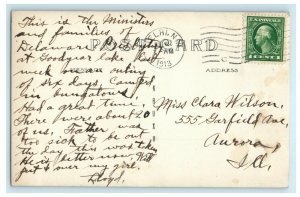 This is the Ministers
and families of
Delaware
at Goodyear Lake last
week on an outing
of six days. Camped
in bungalows.
Had a great time.
There were about 20
of us. Father was
too sick to be out
the day this was taken
He is better now. Will
get over my girl.
Lloyd.
POST CARD
1913
ADDRESS
U.S. POSTAGE
1 CENT 1
Miss Clara Wilson,
555 Garfield Ave,
Aurora,
Ill.